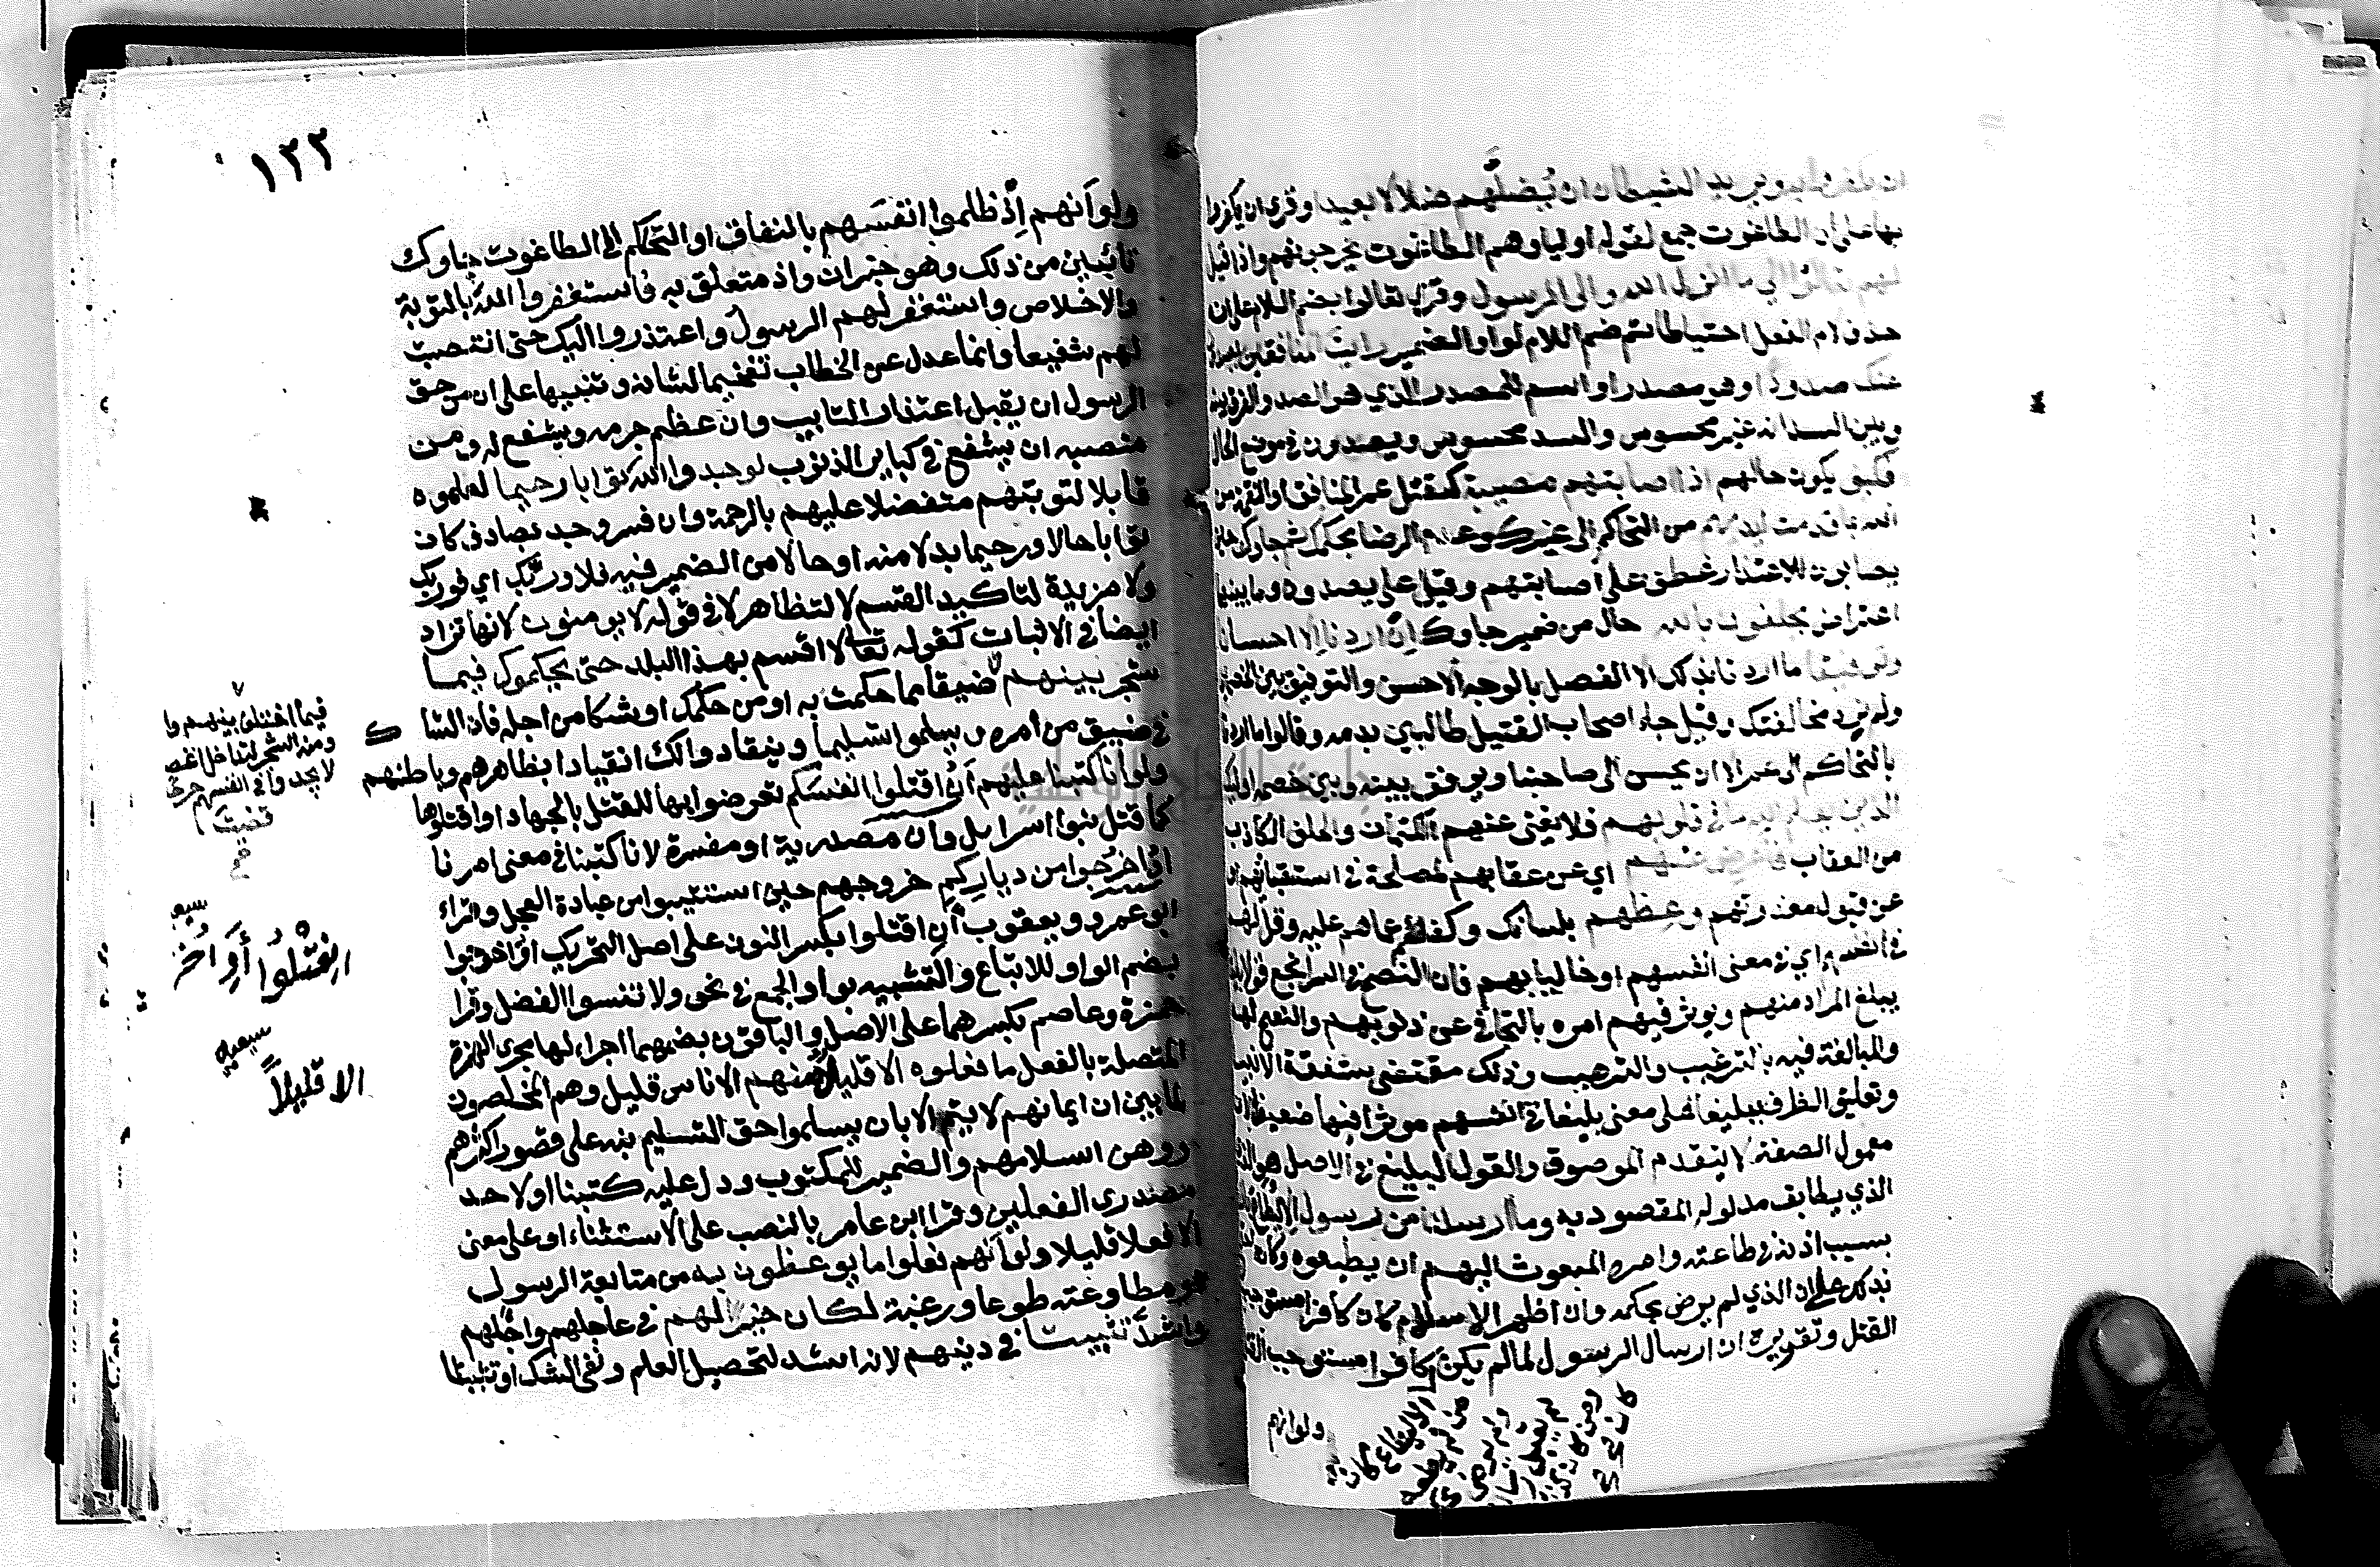 ان يكفروا به ويريد الشيطان ان يضلهم ضلالا بعيدا وقرئ ان يكفروا
بها على ان الطاغوت جمع لقوله اولياوهم الطاغوت يخرجونهم واذا قيل
لهم تعالوا الى ما انزل الله والى الرسول وقرئ تعالوا بضم اللام على ان
حذف لام الفعل ثم ضم اللام لواو الضمير رايت المنافقين يصدون
عنك صدودا وهو مصدر او اسم للمصدر الذي هو الصد والفرق بينه
وبين السد انه غير محسوس والسد محسوس ويصدون في موضع الحال
فكيف يكون حالهم اذا اصابتهم مصيبة كقتل عمر المنافق او النقمة من
الله بما قدمت ايديهم من التحاكم الى غيرك وعدم الرضا بحكمك ثم جاوك حين
يصابون للاعتذار عطف على اصابتهم وقيل على يصدون وما بينهما
اعتراض يحلفون بالله حال من ضمير جاوك ان اردنا الا احسانا
وتوفيقا ما اردنا بذلك الا الفصل بالوجه الاحسن والتوفيق بين الخصمين
ولم نرد مخالفتك وقيل جاء اصحاب القتيل طالبين بدمه وقالوا ما اردنا
بالتحاكم الى عمر الا ان يحسن الى صاحبنا ويوفق بينه وبين خصمه اوليك
الذين يعلم الله ما في قلوبهم فلا يغني عنهم الكتمان والحلف الكاذب
من العقاب فاعرض عنهم اي عن عقابهم لمصلحة في استبقائهم او
عن قبول معذرتهم وعظهم بلسانك وكفهم عما هم عليه وقل لهم
في انفسهم اي في معنى انفسهم او خاليا بهم فان النصح في السر انجع قولا بليغا
يبلغ المراد منهم ويوثر فيهم امره بالتجافي عن ذنوبهم والنصح لها
والمبالغة فيه بالترغيب والترهيب وذلك مقتضى شفقة الانبيا
وتعليق الظرف ببليغا على معنى بليغا في انفسهم موثرا فيها ضعيف لان
معمول الصفة لا يتقدم الموصوف والقول البليغ في الاصل هو الذي
الذي يطابق مدلوله المقصود به وما ارسلنا من رسول الا ليطاع باذن الله
بسبب اذنه في طاعته وامره المبعوث اليهم ان يطيعوه وكانه
بذلك على ان الذي لم يرض بحكمه وان اظهر الاسلام كان كافرا مستوجب
القتل وتقريره ان ارسال الرسول لما لم يكن كافرا مستوجب القتل
الا ليطاع كان
من لم يطعه
ولم يرض
ولو انهم
١٢٢
ولو انهم اذ ظلموا انفسهم بالنفاق او التحاكم الى الطاغوت جاوك
تائبين من ذلك وهو خبر ان واذ متعلق به فاستغفروا الله بالتوبة
والاخلاص واستغفر لهم الرسول واعتذروا اليك حتى انتصبت
لهم شفيعا وانما عدل عن الخطاب تفخيما لشانه وتنبيها على ان من حق
الرسول ان يقبل اعتذار التايب وان عظم جرمه ويشفع له ومن
منصبه ان يشفع في كباير الذنوب لوجدوا الله توابا رحيما لعلموه
قابلا لتوبتهم متفضلا عليهم بالرحمة وان فسر وجد بصادف كان
توابا حالا ورحيما بدلا منه او حالا من الضمير فيه فلا وربك اي فوربك
ولا مزيدة لتاكيد القسم لا لتظاهر لا في قوله لا يومنون لانها تزاد
ايضا في الاثبات كقوله تعالى لا اقسم بهذا البلد حتى يحكموك فيما
شجر بينهم ضيقا مما حكمت به او من حكمك او شكا من اجله فان الشاك
في ضيق من امره ويسلموا تسليما وينقادوا لك انقيادا بظاهرهم وباطنهم
ولو انا كتبنا عليهم ان اقتلوا انفسكم تعرضوا بها للقتل بالجهاد او اقتلوها
كما قتل بنوا اسرايل وان مصدرية او مفسرة لان كتبنا في معنى امرنا
او اخرجوا من دياركم خروجهم حين استتيبوا من عبادة العجل وقراء
ابو عمرو ويعقوب ان اقتلوا بكسر النون على اصل التحريك او اخرجوا
بضم الواو للاتباع والتشبيه بواو الجمع في نحو ولا تنسوا الفضل وقرا
حمزة وعاصم بكسرهما على الاصل والباقون بضمهما اجراء لهما مجرى الهمزة
المتصلة بالفعل ما فعلوه الا قليل منهم الا ناس قليل وهم المخلصون
لما بين ان ايمانهم لا يتم الا بان يسلموا حق التسليم نبه على قصور اكثرهم
ووهن اسلامهم والضمير للمكتوب ودل عليه كتبنا او لاحد
مصدري الفعلين وقرا ابن عامر بالنصب على الاستثناء او على معنى
الا فعلا قليلا ولو انهم فعلوا ما يوعظون به من متابعة الرسول
ومطاوعته طوعا ورغبة لكان خيرا لهم في عاجلهم واجلهم
واشد تثبيتا في دينهم لانه اشد لتحصيل العلم ونفي الشك او تثبيتا
فيما اختلف بينهم و
ومنه الشجر لتداخل اغصا
لا يجدوا في انفسهم حرجا
قضيت
اقتلوا أو اخر
الا قليلاً